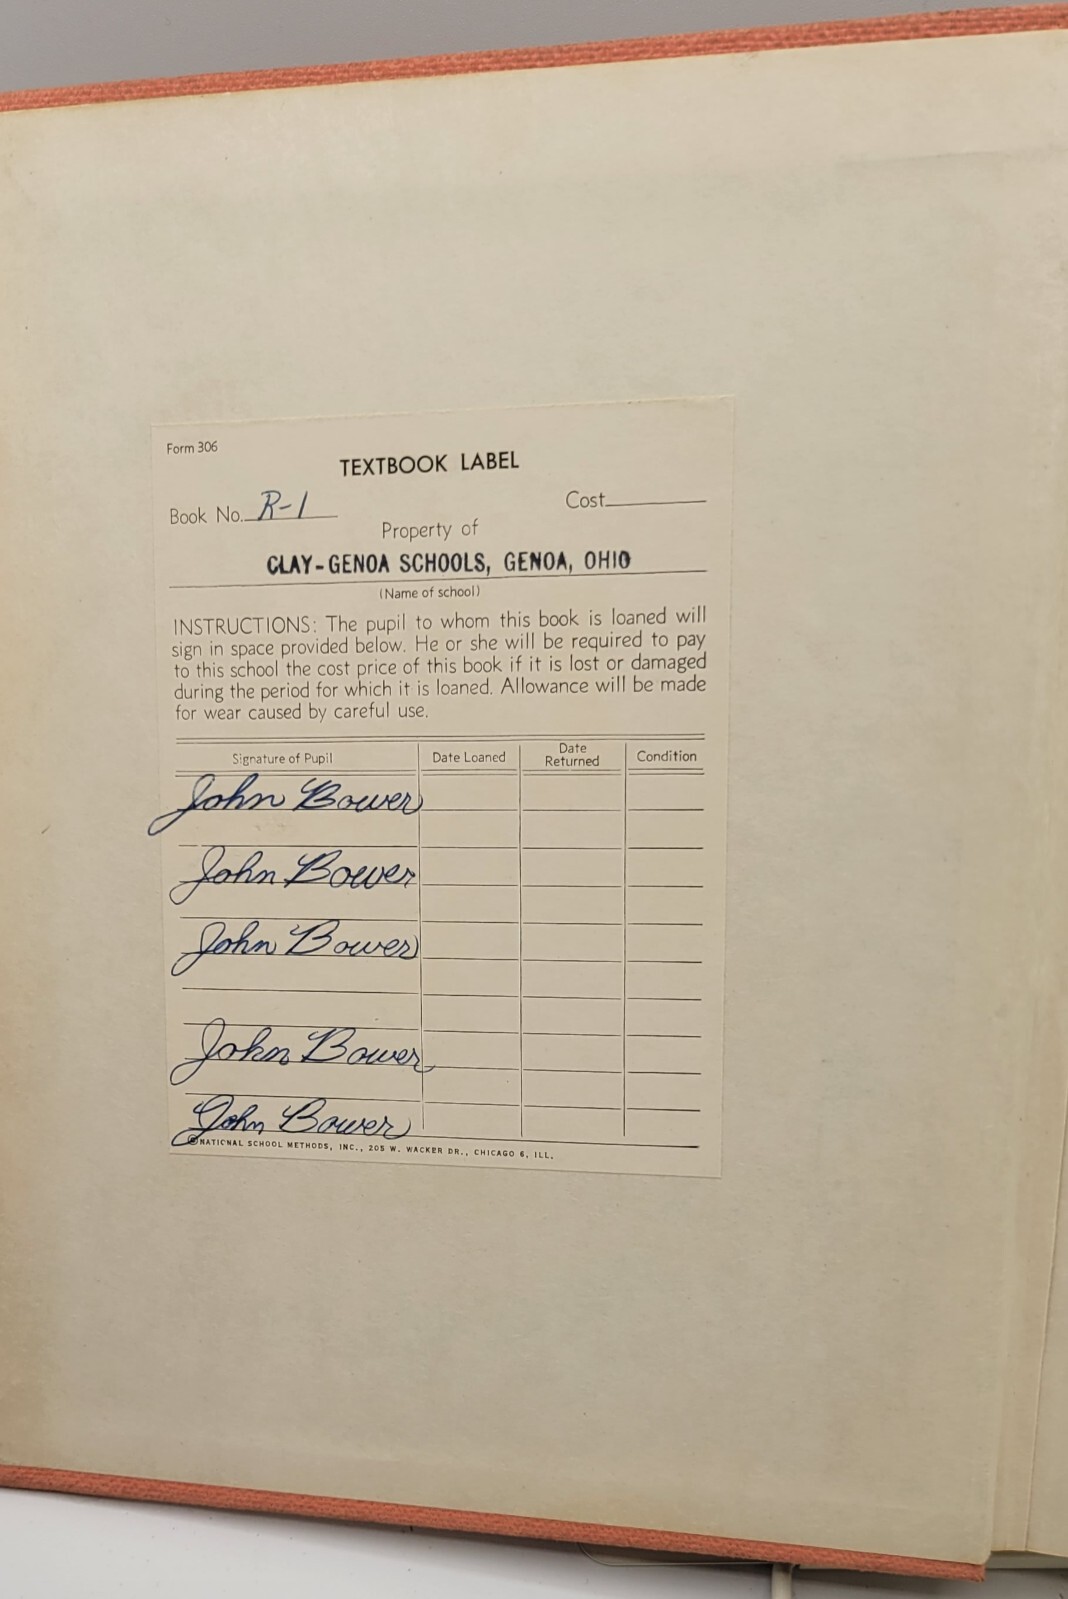 Form 306
TEXTBOOK LABEL
Book No. R-1 Cost
Property of
CLAY-GENOA SCHOOLS, GENOA, OHIO
(Name of school)
INSTRUCTIONS: The pupil to whom this book is loaned will
sign in space provided below. He or she will be required to pay
to this school the cost price of this book if it is lost or damaged
during the period for which it is loaned. Allowance will be made
for wear caused by careful use.
Signature of Pupil Date Loaned Date Returned Condition
John Bower
John Bower
John Bower
John Bower
John Bower
©NATIONAL SCHOOL METHODS, INC., 205 W. WACKER DR., CHICAGO 6, ILL.